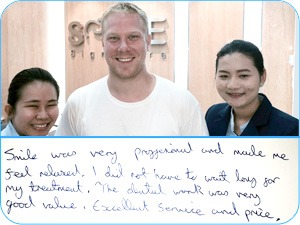 Smile was very proffesional and made me
feel relaxed. I did not have to wait long for
my treatment. The dental work was very
good value. Excellent service and price.